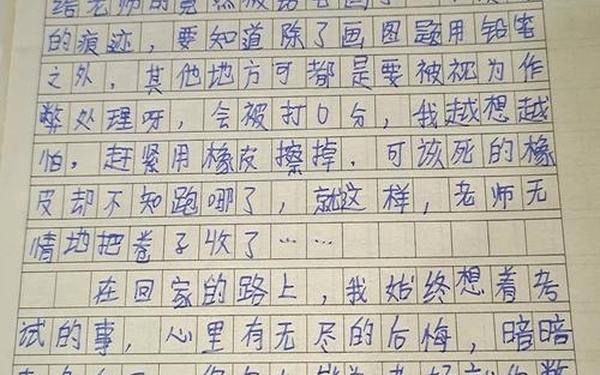 的痕迹，要知道除了画图题用铅笔
之外，其他地方可都是要被视为作
弊处理呀，会被打0分，我越想越
怕，赶紧用橡皮擦掉．可该死的橡
皮却不知跑哪了，就这样，老师无
情地把卷子收了……
在回家的路上，我始终想着考
试的事，心里有无尽的后悔，暗暗